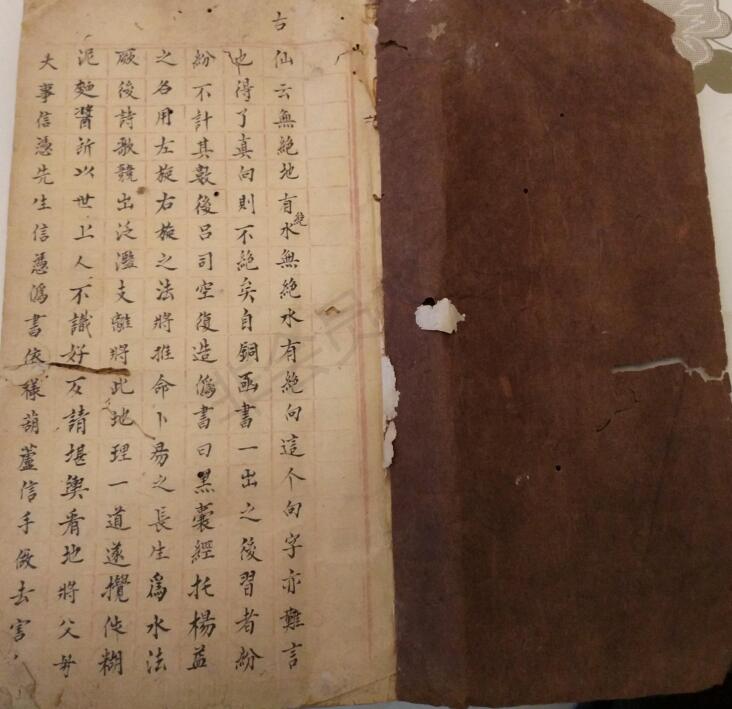 古仙云無絶地有絶水無絶水有絶向這个向字亦難言
也得了真向則不絶矣自銅函書一出之後習者紛
紛不計其數後呂司空復造偽書曰黑囊經托楊益
之名用左旋右旋之法將推命卜易之長生爲水法
厥後詩歌競出泛濫支離將此地理一道遂攪作糊
泥麵醬所以世上人不識好歹請堪輿看地將父母
大事信憑先生信憑偽書依樣葫蘆信手做去害